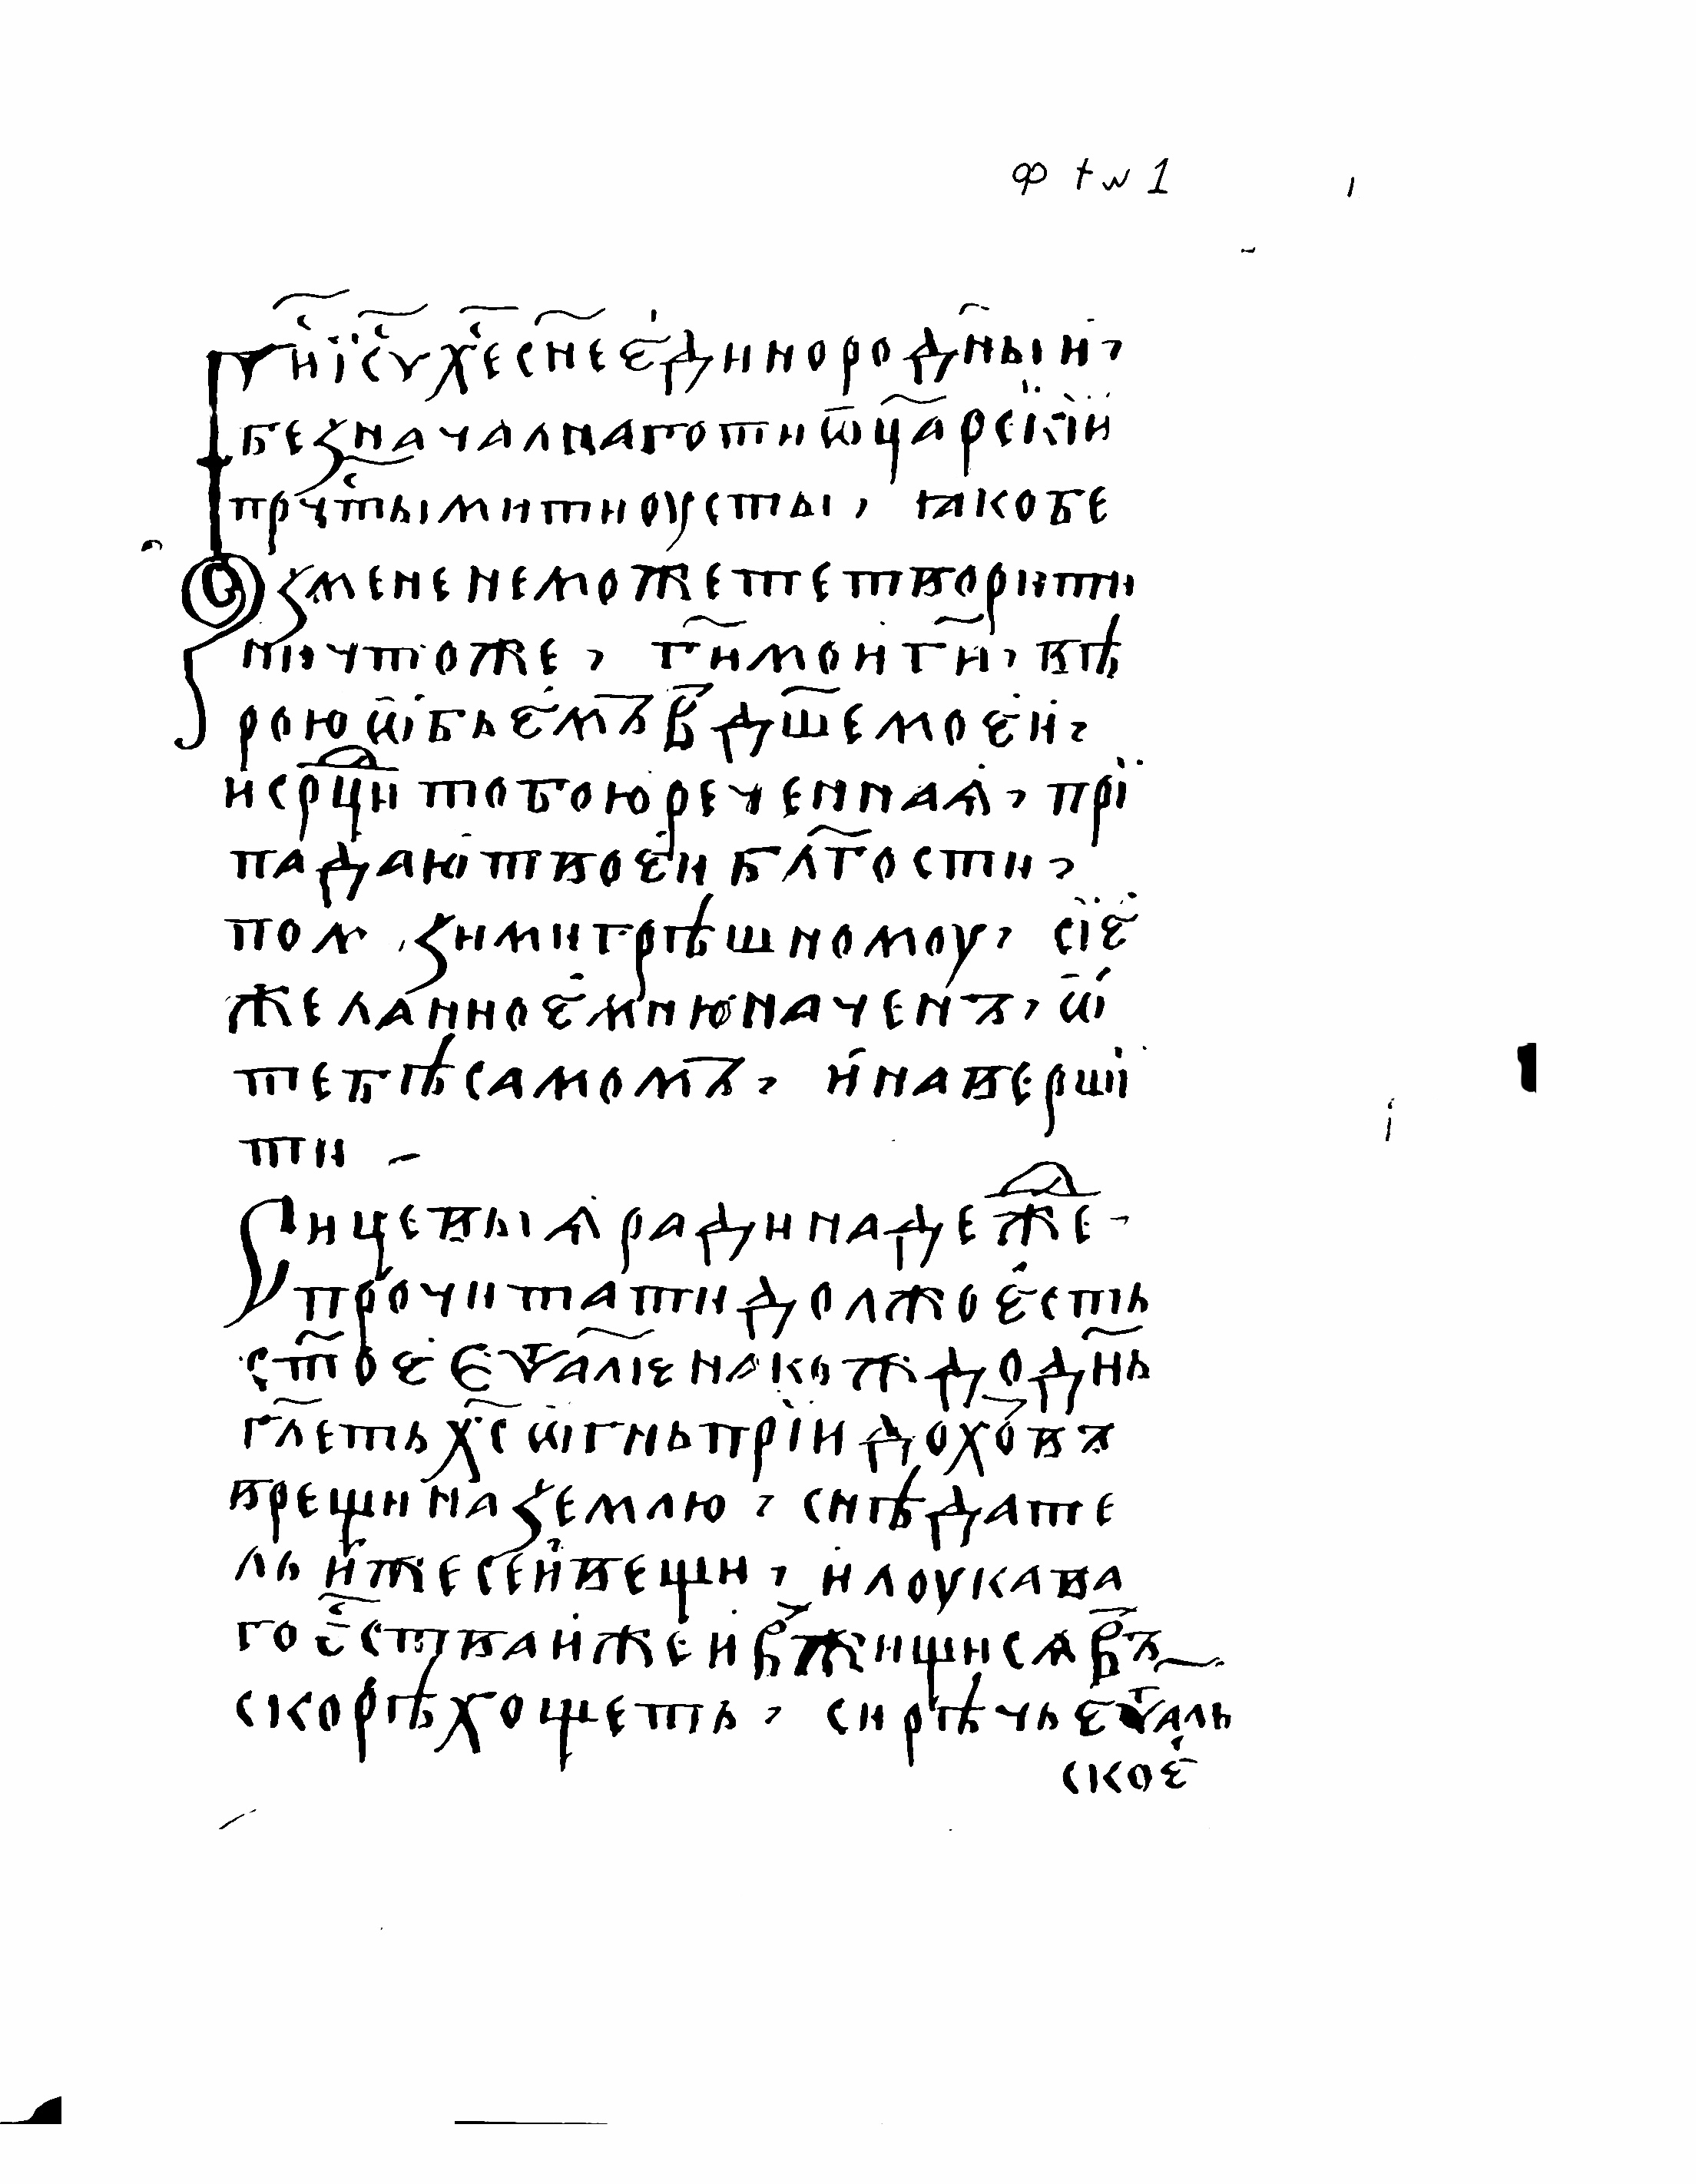 ф т w 1
Гн҃и їс҃у хе҃ сн҃е є҆динородн҃ыи,
безначалнаго ти ѿц҃а рекїи
прч҃тыми ти оусты, ꙗко бе
змене неможете творити
ничтоже, гн҃и мои гн҃и, вѣ
рою ѡ҆бьемъ в дш҃е моеи,
и срⷣци тобою реченнаѧ, прї
падаю твоеи бл҃гости,
помѡзи ми грѣшномоу, сїе
желанное мню наченъ, ѡ҆
тебѣ самомъ, и наверши
ти
Сицевыѧ ради надеⷤже
прочитати должо есть
ст҃ое Еѵⷢ҇алїе на кождо дн҃ь
гл҃еть хс҃ ѡ҆гнь прїидохѡ въ
врещи на землю, снѣдате
ль иже сеи вещи, и лоукава
го е҆стваиже и вжищисѧ въ
скорѣ хощеть, сирѣчь еѵⷢ҇аль
ское